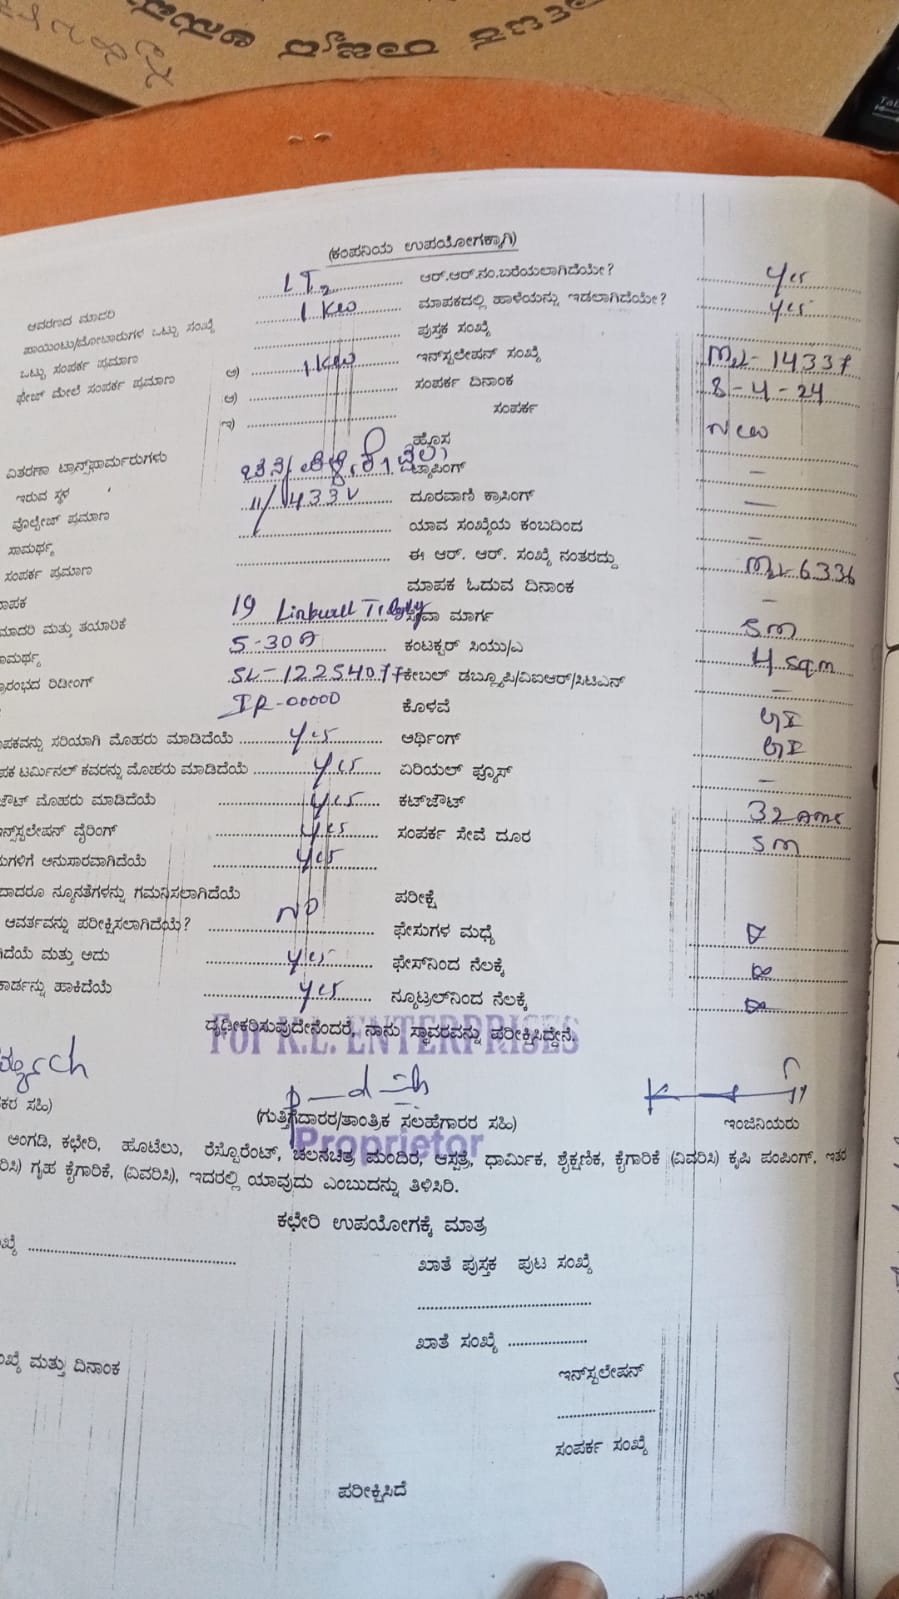 (ಕಂಪನಿಯ ಉಪಯೋಗಕ್ಕಾಗಿ)
ಆವರಣದ ಮಾದರಿ LT2 ಆರ್.ಆರ್.ನಂ.ಬರೆಯಲಾಗಿದೆಯೇ? yes
ಪಾಯಿಂಟು/ಮೋಟಾರುಗಳ ಒಟ್ಟು ಸಂಖ್ಯೆ 1 Kw ಮಾಪಕದಲ್ಲಿ ಹಾಳೆಯನ್ನು ಇಡಲಾಗಿದೆಯೇ? yes
ಒಟ್ಟು ಸಂಪರ್ಕ ಪ್ರಮಾಣ ಪುಸ್ತಕ ಸಂಖ್ಯೆ
ಫೇಜ್ ಮೇಲೆ ಸಂಪರ್ಕ ಪ್ರಮಾಣ ಅ) 1 Kw ಇನ್‌ಸ್ಟಲೇಷನ್ ಸಂಖ್ಯೆ ML-14337
ಆ) ಸಂಪರ್ಕ ದಿನಾಂಕ 8-4-24
ಇ) ಸಂಪರ್ಕ New
ವಿತರಣಾ ಟ್ರಾನ್ಸ್‌ಫಾರ್ಮರುಗಳು ಹೊಸ
ಇರುವ ಸ್ಥಳ ಟ್ಯಾಪಿಂಗ್ -
ವೊಲ್ಟೇಜ್ ಪ್ರಮಾಣ 11/433V ದೂರವಾಣಿ ಕ್ರಾಸಿಂಗ್ -
ಸಾಮರ್ಥ್ಯ ಯಾವ ಸಂಖ್ಯೆಯ ಕಂಬದಿಂದ -
ಸಂಪರ್ಕ ಪ್ರಮಾಣ ಈ ಆರ್. ಆರ್. ಸಂಖ್ಯೆ ನಂತರದ್ದು ML-6336
ಾಪಕ ಮಾಪಕ ಓದುವ ದಿನಾಂಕ -
ಮಾದರಿ ಮತ್ತು ತಯಾರಿಕೆ 19 ಸೇವಾ ಮಾರ್ಗ 5m
ಾಮರ್ಥ್ಯ 5-30A ಕಂಟಕ್ಟರ್ ಸಿಯು/ಎ 4 sqm
ಾರಂಭದ ರಿಡೀಂಗ್ SL-12254077 ಕೇಬಲ್ ಡಬ್ಲ್ಯೂಪಿ/ವಿಐಆರ್/ಸಿಟಿಎನ್ -
IR-00000 ಕೊಳವೆ GI
ಾಪಕವನ್ನು ಸರಿಯಾಗಿ ಮೊಹರು ಮಾಡಿದೆಯೆ yes ಅರ್ಥಿಂಗ್ GI
ಪಕ ಟರ್ಮಿನಲ್ ಕವರನ್ನು ಮೊಹರು ಮಾಡಿದೆಯೆ yes ಏರಿಯಲ್ ಫ್ಯೂಸ್ -
ಜೌಟ್ ಮೊಹರು ಮಾಡಿದೆಯೆ yes ಕಟ್‌ಜೌಟ್ 32 Ams
ನ್‌ಸ್ಟಲೇಷನ್ ವೈರಿಂಗ್ yes ಸಂಪರ್ಕ ಸೇವೆ ದೂರ 5m
ುಗಳಿಗೆ ಅನುಸಾರವಾಗಿದೆಯೆ yes
ದಾದರೂ ನ್ಯೂನತೆಗಳನ್ನು ಗಮನಿಸಲಾಗಿದೆಯೆ ಪರೀಕ್ಷೆ
ಆವರ್ತವನ್ನು ಪರೀಕ್ಷಿಸಲಾಗಿದೆಯೆ? NO ಫೇಸುಗಳ ಮಧ್ಯೆ
ಗಿದೆಯೆ ಮತ್ತು ಅದು yes ಫೇಸ್‌ನಿಂದ ನೆಲಕ್ಕೆ
ಕಾರ್ಡನ್ನು ಹಾಕಿದೆಯೆ yes ನ್ಯೂಟ್ರಲ್‌ನಿಂದ ನೆಲಕ್ಕೆ
ದೃಢೀಕರಿಸುವುದೇನೆಂದರೆ, ನಾನು ಸ್ಥಾವರವನ್ನು ಪರೀಕ್ಷಿಸಿದ್ದೇನೆ.
For K.L. ENTERPRISES
ಕರ ಸಹಿ) (ಗುತ್ತಿಗೆದಾರರ/ತಾಂತ್ರಿಕ ಸಲಹೆಗಾರರ ಸಹಿ) ಇಂಜಿನಿಯರು
Proprietor
ಅಂಗಡಿ, ಕಛೇರಿ, ಹೊಟೆಲು, ರೆಸ್ಟೊರೆಂಟ್, ಚಲನಚಿತ್ರ ಮಂದಿರ, ಆಸ್ಪತ್ರೆ, ಧಾರ್ಮಿಕ, ಶೈಕ್ಷಣಿಕ, ಕೈಗಾರಿಕೆ (ವಿವರಿಸಿ) ಕೃಷಿ ಪಂಪಿಂಗ್, ಇತರ
ರಿಸಿ) ಗೃಹ ಕೈಗಾರಿಕೆ, (ವಿವರಿಸಿ), ಇದರಲ್ಲಿ ಯಾವುದು ಎಂಬುದನ್ನು ತಿಳಿಸಿರಿ.
ಕಛೇರಿ ಉಪಯೋಗಕ್ಕೆ ಮಾತ್ರ
ಖ್ಯೆ
ಖಾತೆ ಪುಸ್ತಕ ಪುಟ ಸಂಖ್ಯೆ
ಖಾತೆ ಸಂಖ್ಯೆ
ಖ್ಯೆ ಮತ್ತು ದಿನಾಂಕ
ಇನ್‌ಸ್ಟಲೇಷನ್
ಸಂಪರ್ಕ ಸಂಖ್ಯೆ
ಪರೀಕ್ಷಿಸಿದೆ